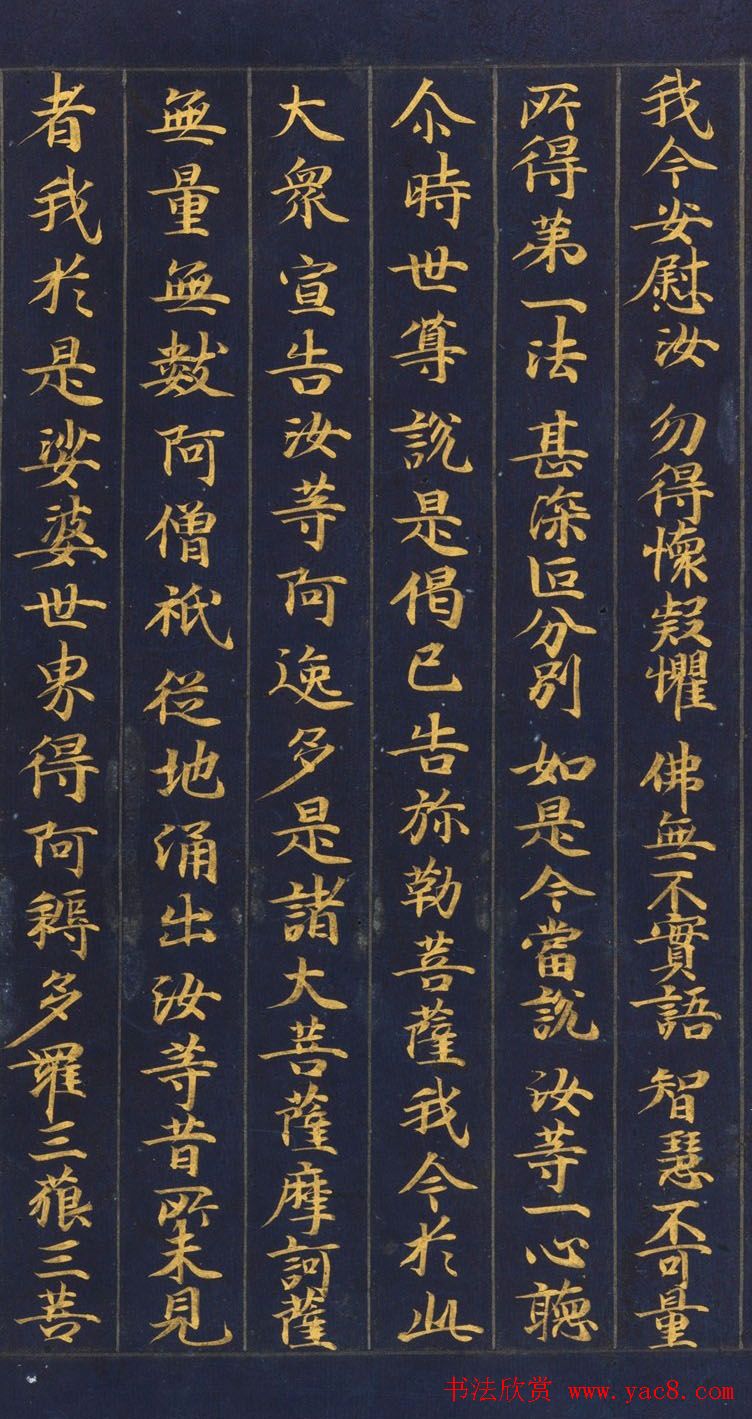 我今安慰汝 勿得懷疑懼 佛無不實語 智慧不可量
所得第一法 甚深叵分別 如是今當說 汝等一心聽
尒時世尊說是偈已告弥勒菩薩我今於此
大衆宣告汝等阿逸多是諸大菩薩摩訶薩
無量無數阿僧祇從地涌出汝等昔所未見
者我於是娑婆世界得阿耨多羅三藐三菩
书法欣赏 www.yac8.com